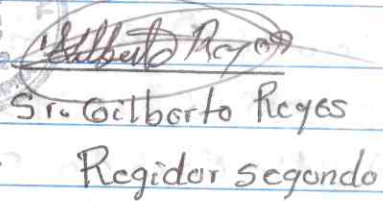 Gilberto Reyes
Sr. Gilberto Reyes
Regidor segondo